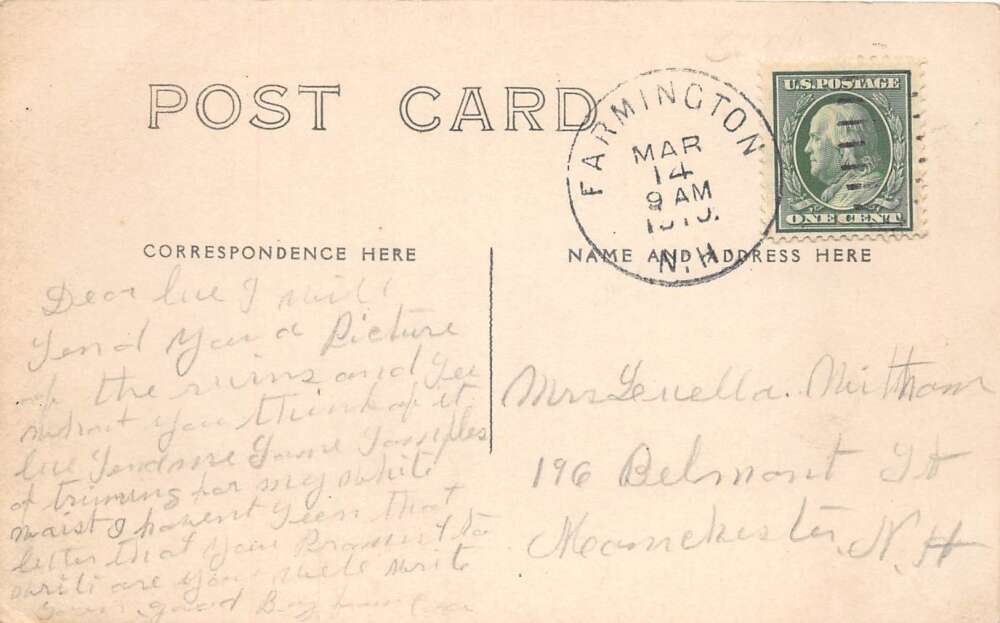 POST CARD
FARMINGTON
MAR
14
9 AM
1910.
N.H.
U.S. POSTAGE
ONE CENT
CORRESPONDENCE HERE
NAME AND ADDRESS HERE
Dear lue I will
Send You a Picture
of the ruins and See
what you think of it
lue Send me Some Samples
of triming for my white
waist I havent Seen that
letter that you Promist to
write are you well write
Soon good By from
Mrs Luella
196 Belmont St
Manchester, N.H